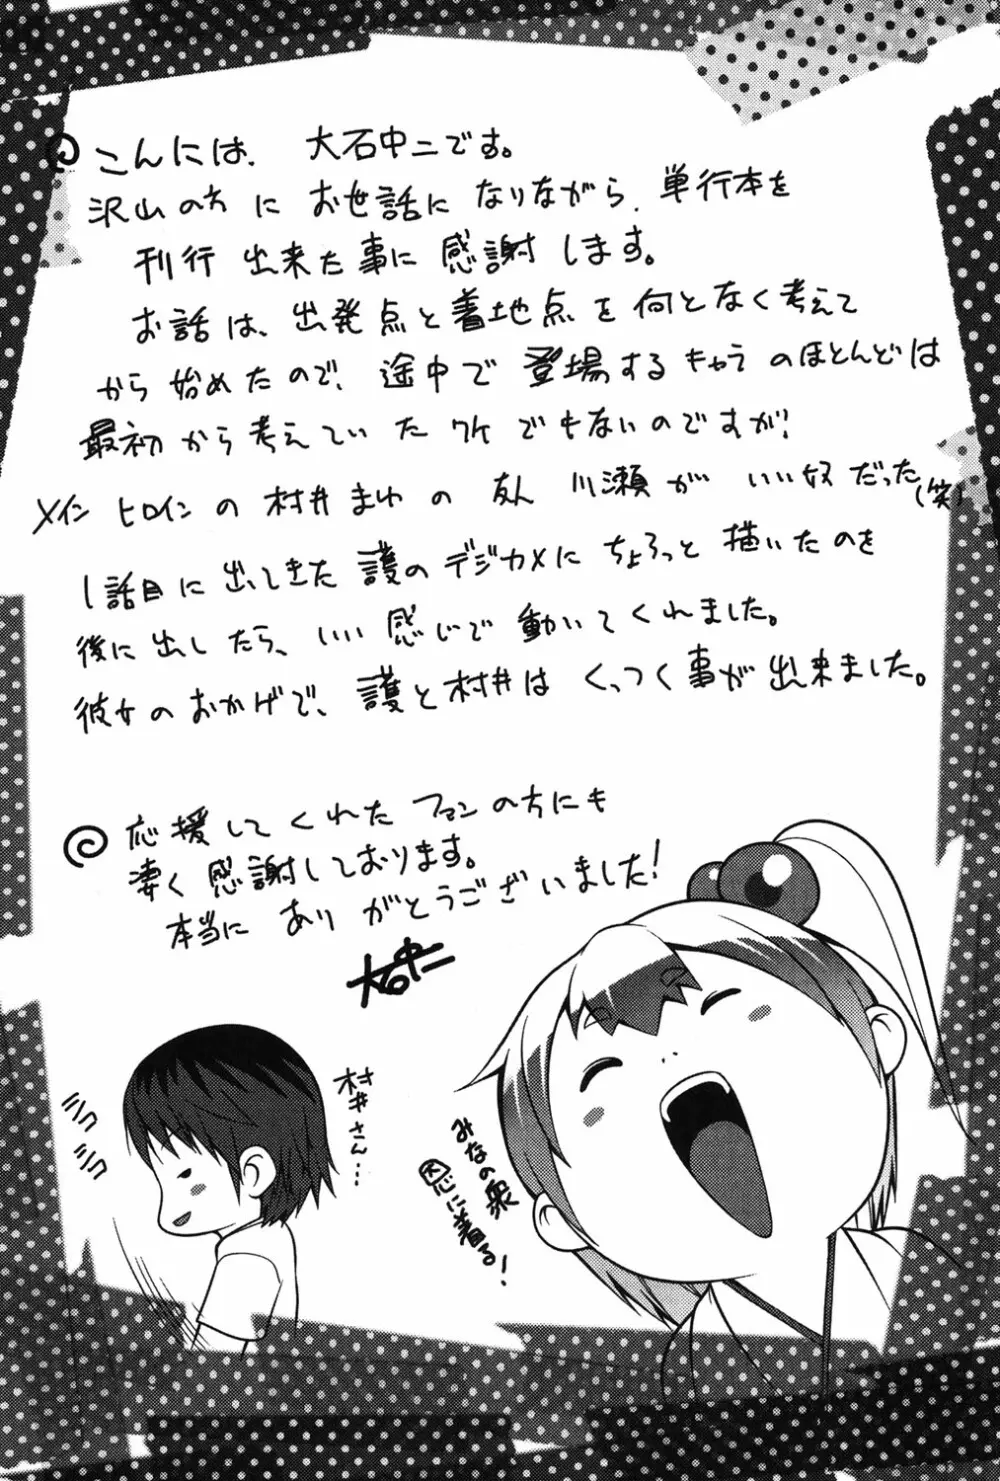 こんには、大石中二です。
沢山の方にお世話になりながら、単行本を
刊行出来た事に感謝します。
お話は、出発点と着地点を何となく考えて
から始めたので、途中で登場するキャラのほとんどは
最初から考えていたワケでもないのですが！
メインヒロインの村井まゆの友人川瀬がいい奴だった(笑)
1話目に出てきた護のデジカメにちょろっと描いたのを
後に出したら、いい感じで動いてくれました。
彼女のおかげで、護と村井はくっつく事が出来ました。
応援してくれたファンの方にも
凄く感謝しております。
本当にありがとうございました！
大石中二
村井さん…
ミコ
ミコ
みなの衆
恩に着る！